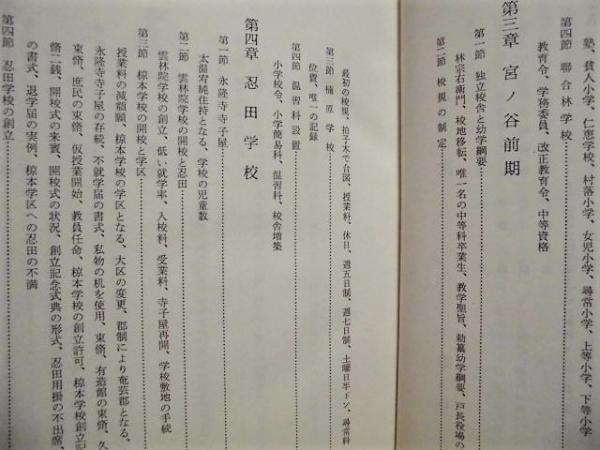 塾、貧人小学、仁恵学校、村落小学、女児小学、尋常小学、上等小学、下等小学
第四節 聯合林学校
教育令、学務委員、改正教育令、中等資格
第三章 宮ノ谷前期
第一節 独立校舎と幼学綱要
林宗右衛門、校地移転、唯一名の中等科卒業生、教学聖旨、勅纂幼学綱要、戸長役場の
第二節 校規の制定
最初の校規、拍子木で合図、授業料、休日、週五日制、週七日制、土曜日半ドン、尋常科
第三節 楠原学校
位置、唯一の記録
第四節 温習科設置
小学校令、小学簡易科、温習科、校舎増築
第四章 忍田学校
第一節 永隆寺寺子屋
太温宥純住持となる、学校の児童数
第二節 雲林院学校の開校と忍田
雲林院学校の創立、低い就学率、入校料、受業料、寺子屋再開、学校敷地の手続
第三節 椋本学校の開校と学区
授業料の減額願、椋本学校の学区となる、大区の変更、郡制により奄芸郡となる、
永隆寺寺子屋の存続、不就学届の書式、私物の机を使用、束脩、有造館の束脩、久
束脩、庶民の束脩、仮授業開始、教員任命、椋本学校の創立許可、椋本学校創立記
脩二銭、開校式の来賓、開校式の状況、創立記念式典の形式、忍田用掛の不出席、
の書式、退学届の実例、椋本学区への忍田の不満
第四節 忍田学校の創立